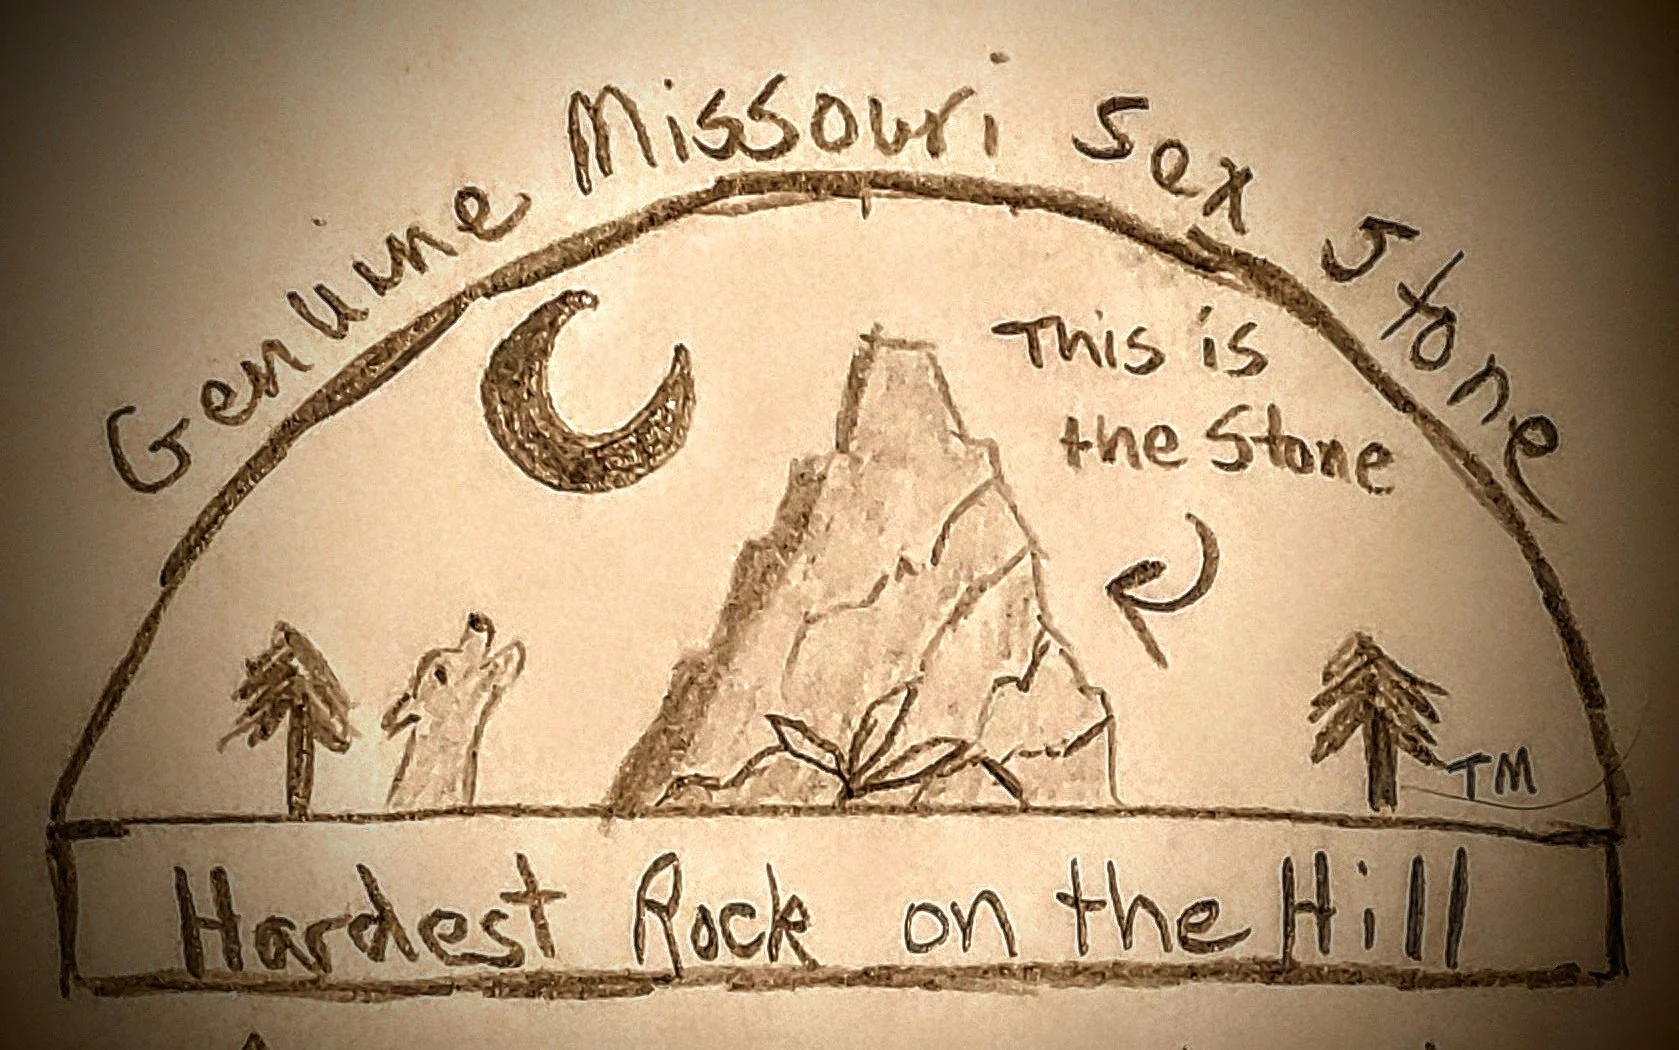 Genuine Missouri Sex Stone
This is
the Stone
TM
Hardest Rock on the Hill